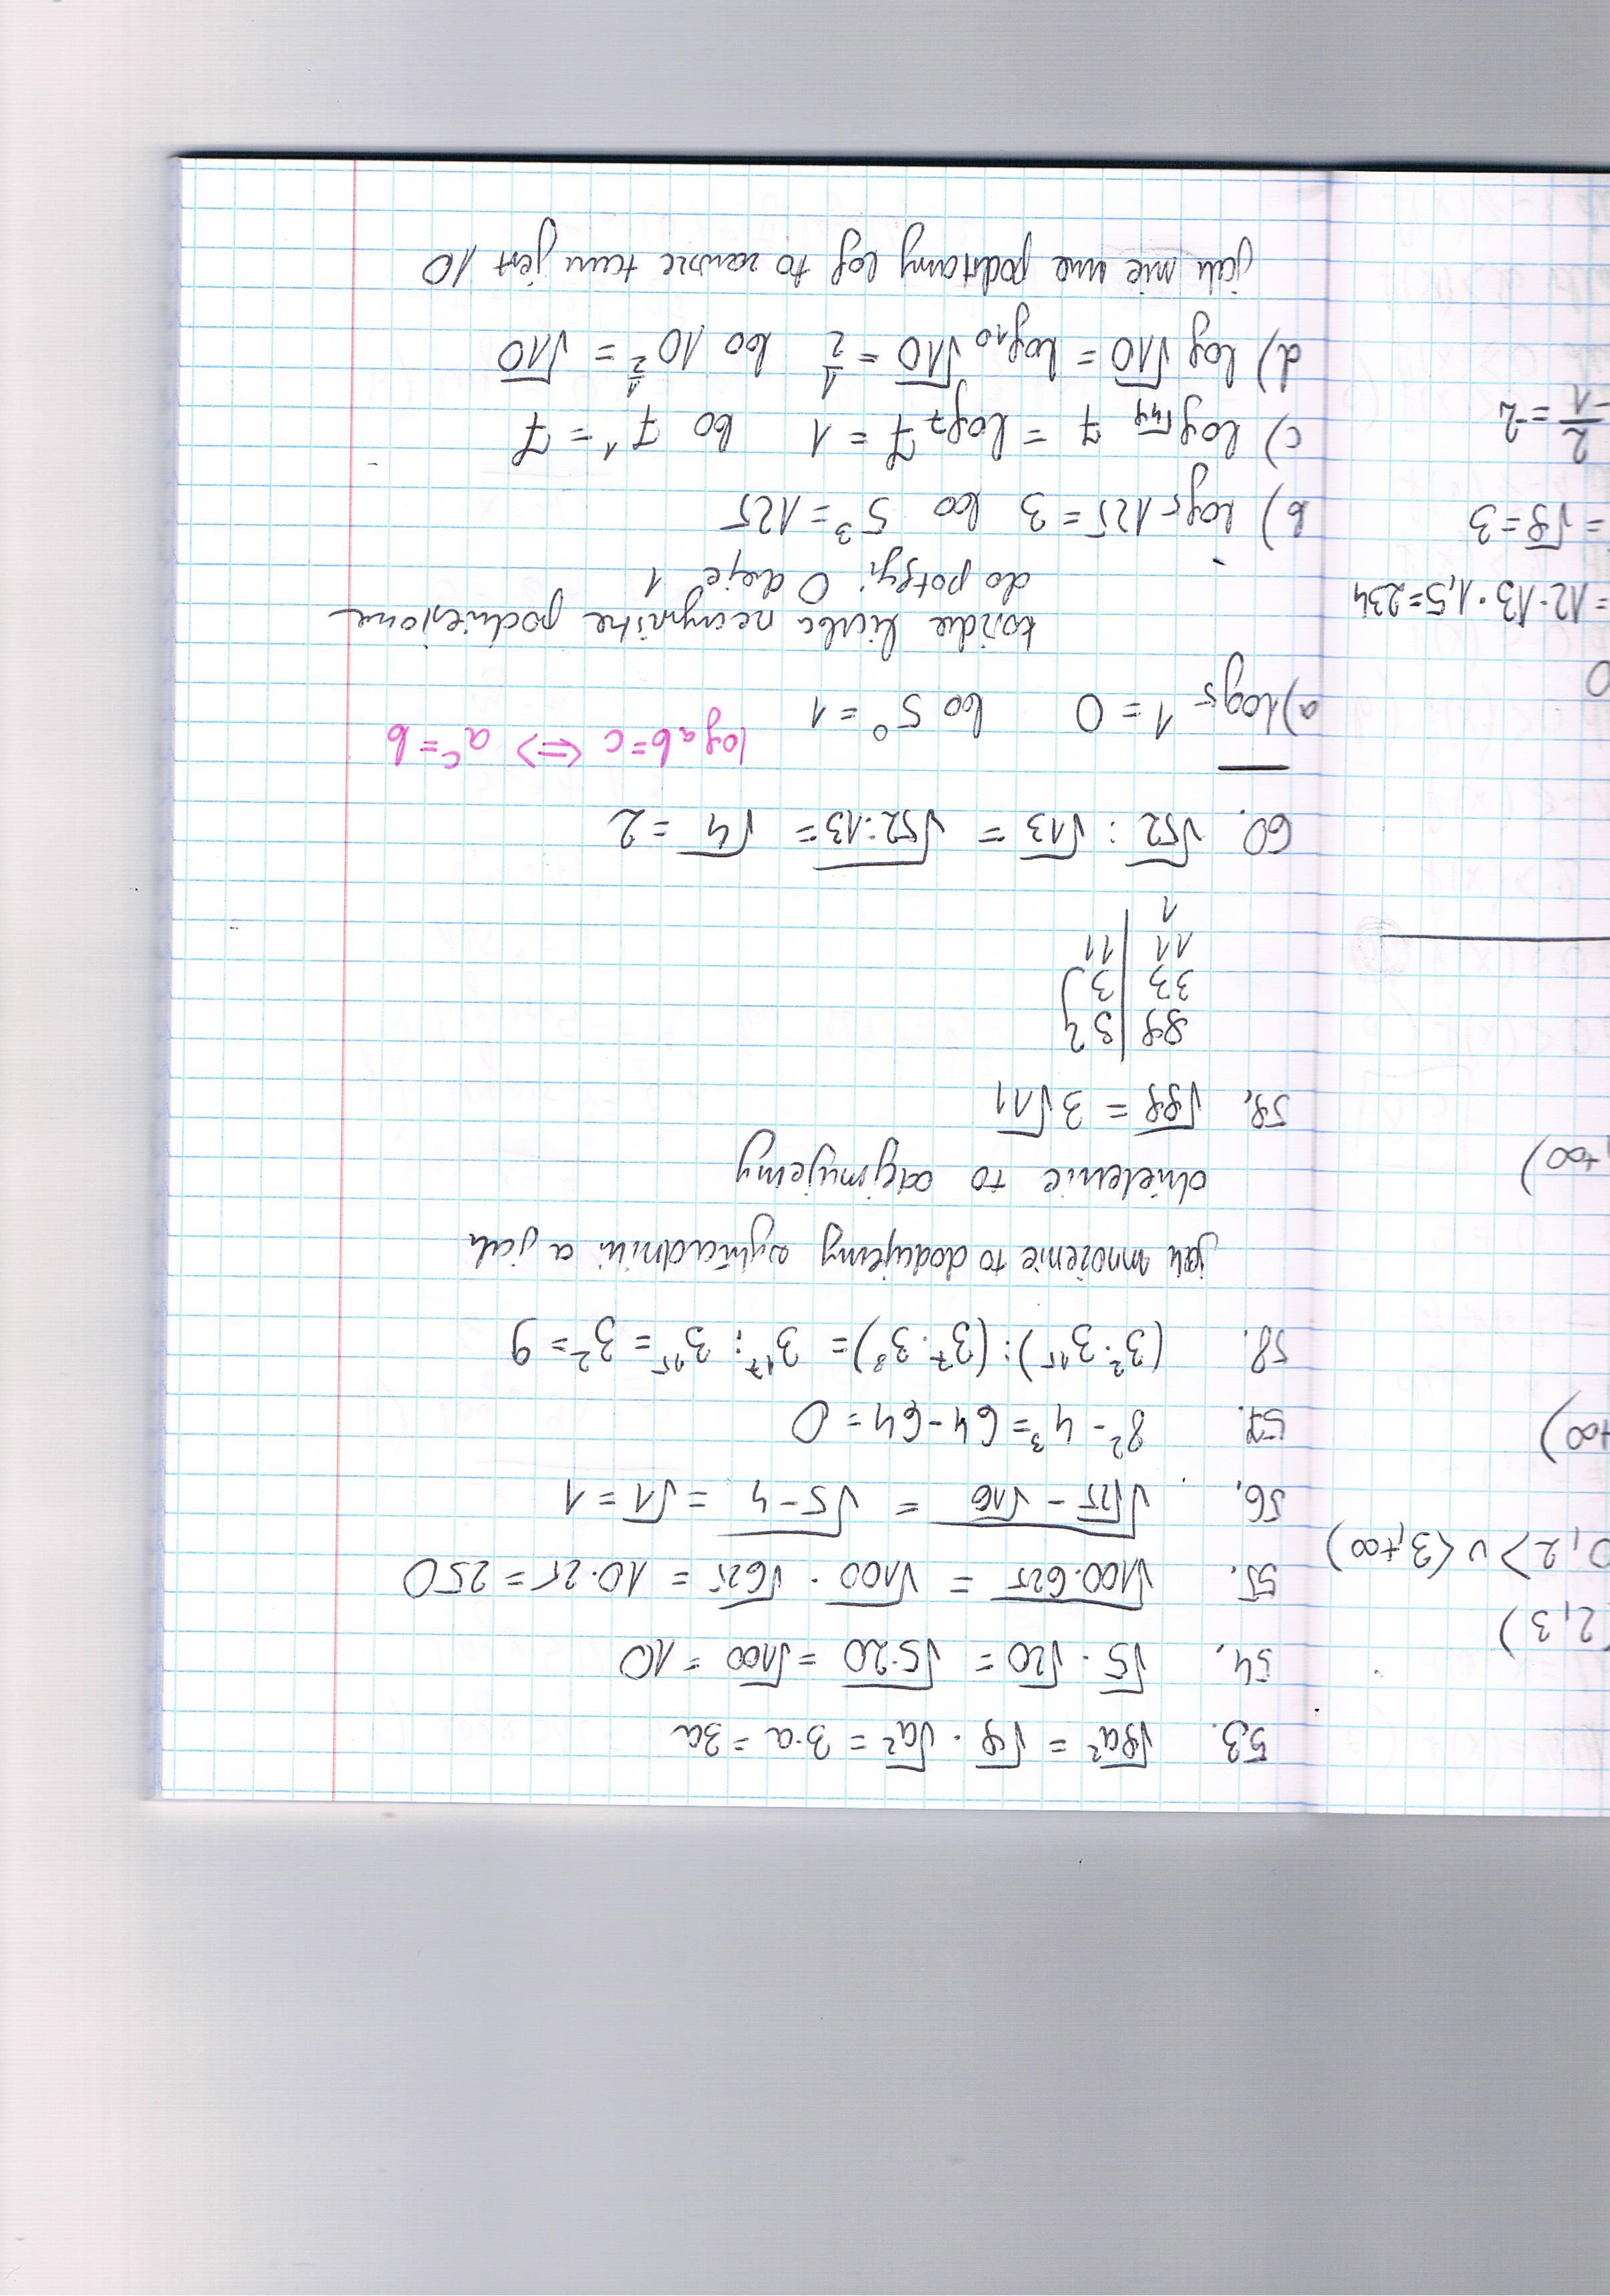 53. √9a² = √9 · √a² = 3·a = 3a
54. √5 · √20 = √5·20 = √100 = 10
55. √100·625 = √100 · √625 = 10·25 = 250
56. √√25 - √16 = √5-4 = √1 = 1
57. 8² - 4³ = 64 - 64 = 0
58. (3²·3¹⁵):(3⁷·3⁸) = 3¹⁷ : 3¹⁵ = 3² = 9
jak mnożenie to dodajemy a jak
dzielenie to odejmujemy
59. √99 = 3√11
99 | 3
33 | 3
11 | 11
1
60. √52 : √13 = √52:13 = √4 = 2
logₐb=c <=> aᶜ=b
a) log₅ 1 = 0 bo 5⁰ = 1
każda liczba podniesiona
do potęgi 0 daje 1
b) log₅ 125 = 3 bo 5³ = 125
c) log√49 7 = log₇ 7 = 1 bo 7¹ = 7
d) log √10 = log₁₀ √10 = 1/2 bo 10^1/2 = √10
jak nie ma podstawy log to zawsze tam jest 10
2,3)
0,2> ∪ <3,+∞)
+∞)
,+∞)
0
= 12·13·1,5=234
= √9 = 3
2/-1 = -2